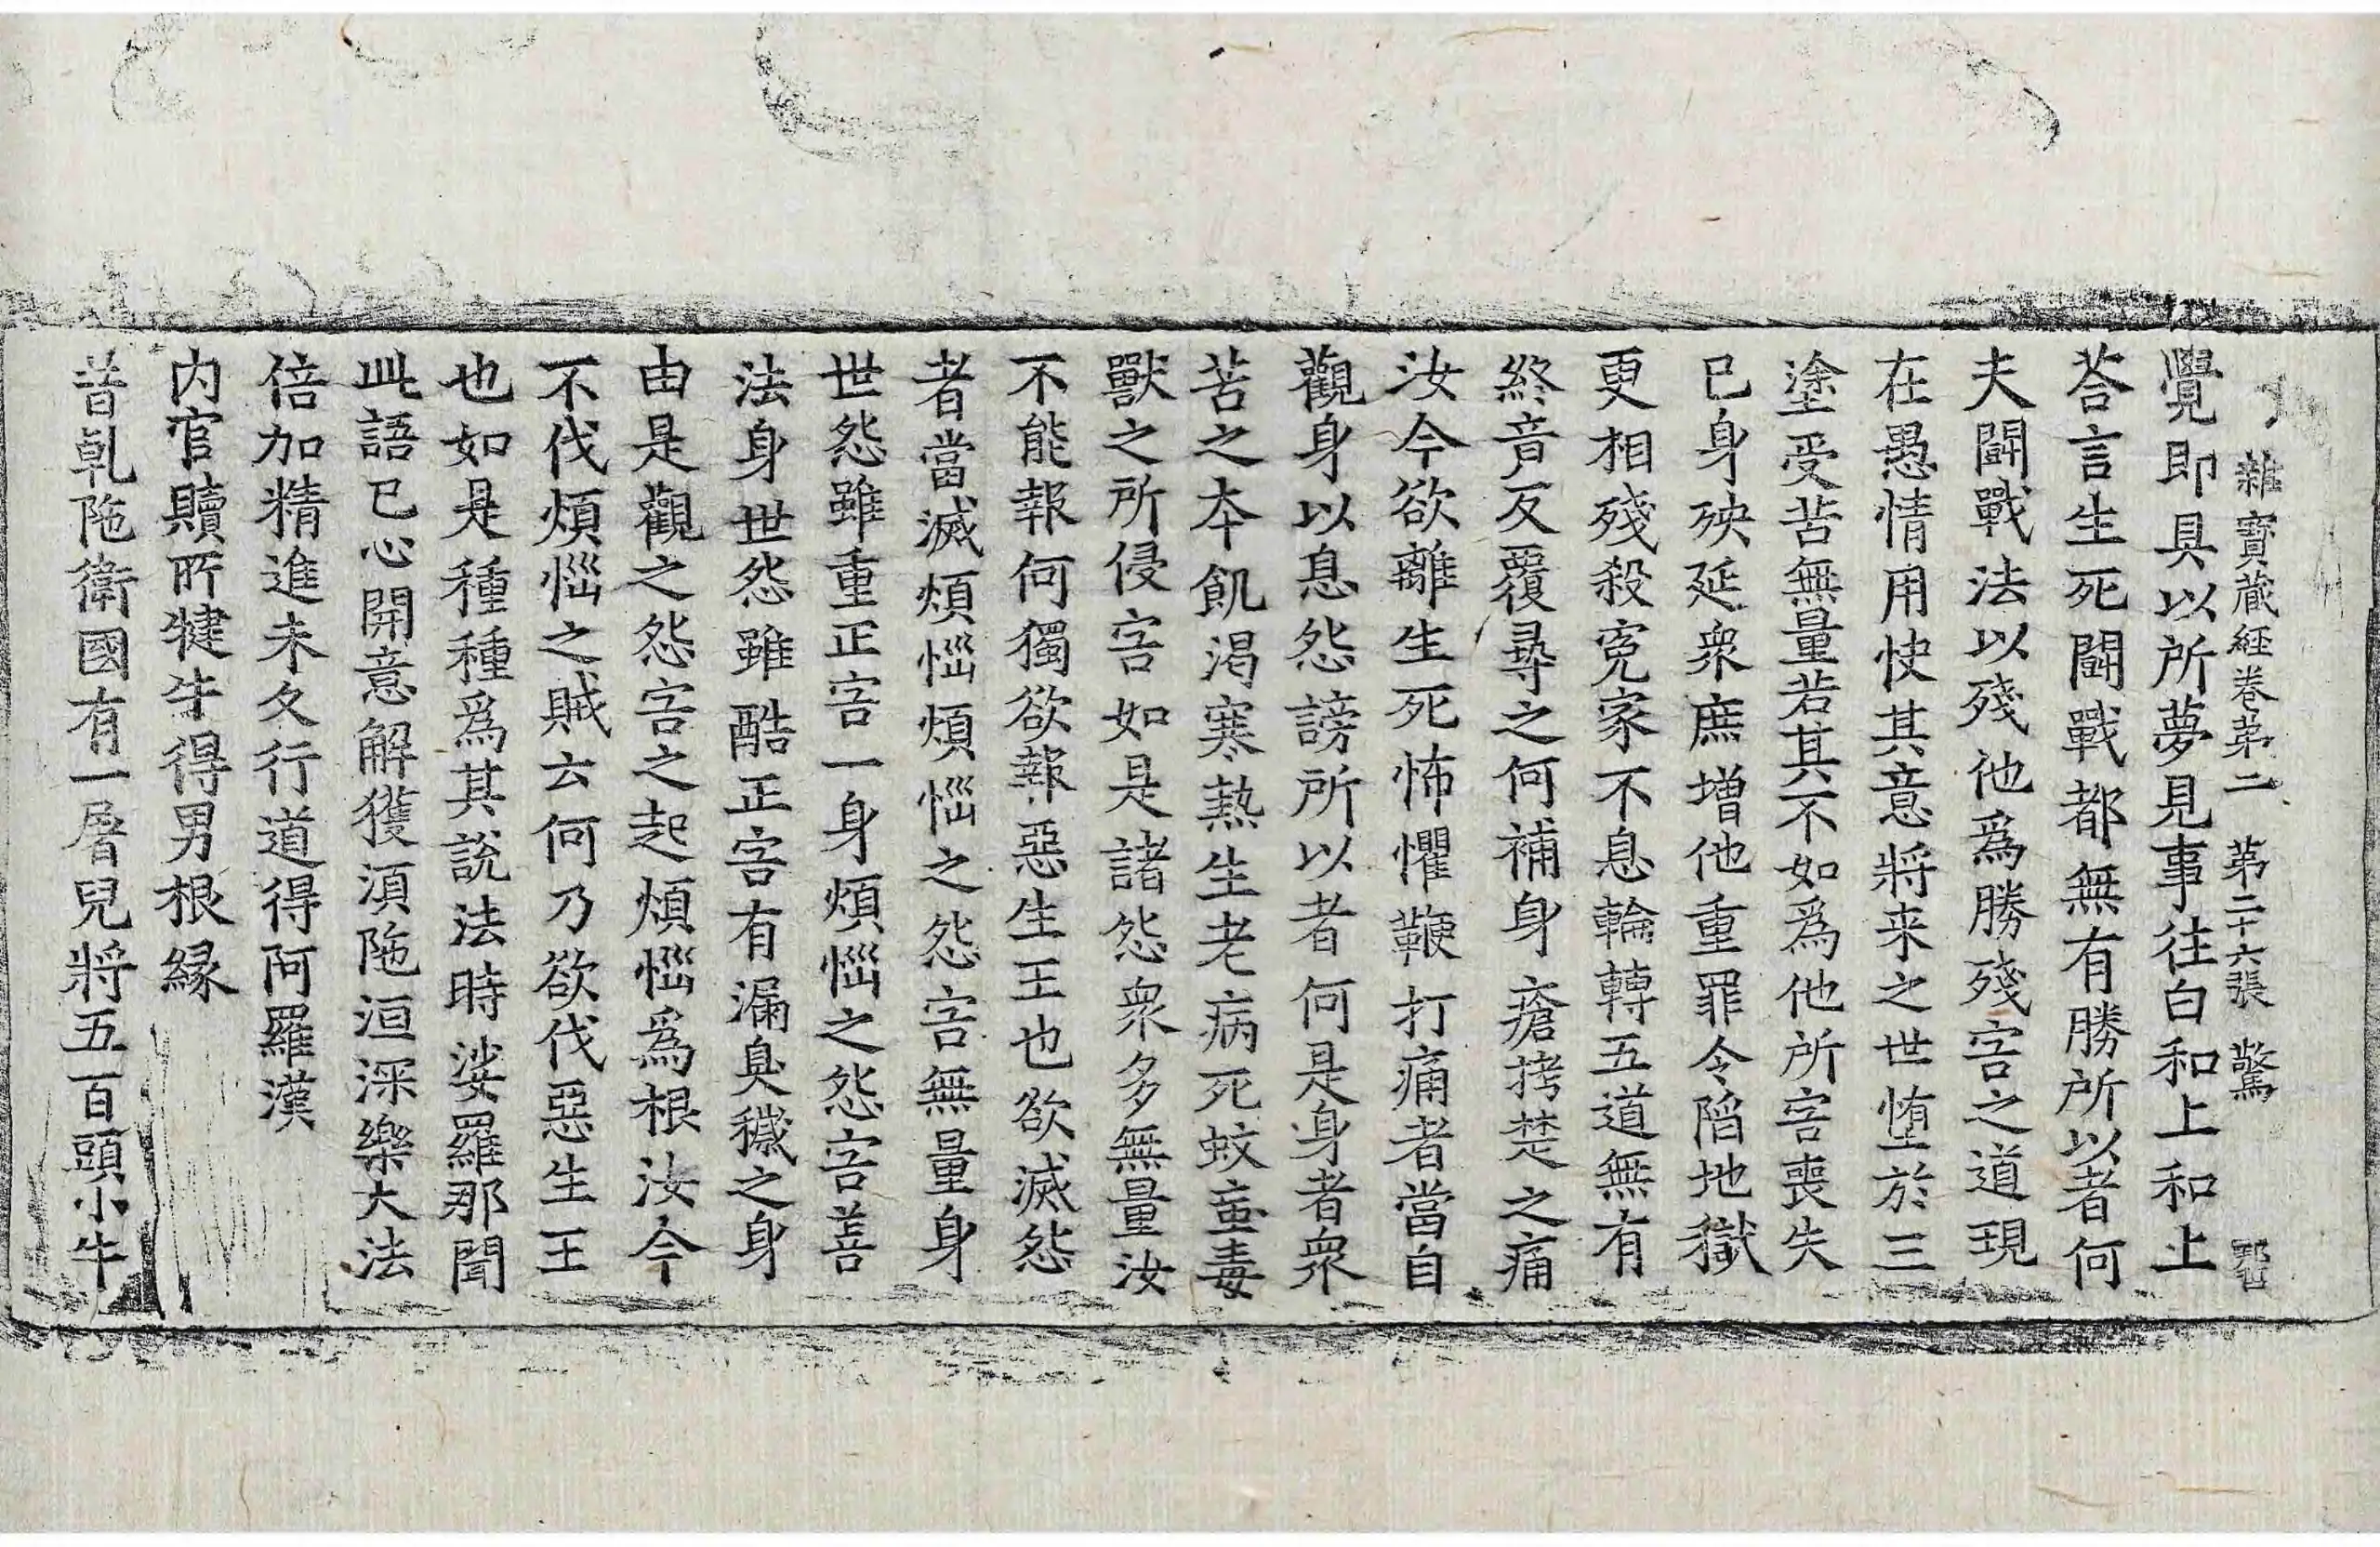 雜寶蔵経卷第二　第二十六張　驚
覺即具以所夢見事往白和上和上
荅言生死闘戰都無有勝所以者何
夫闘戰法以殘他爲勝殘害之道現
在愚情用快其意將来之世堕於三
塗受苦無量若其不如爲他所害喪失
已身殃延衆庶增他重罪令陷地獄
更相殘殺寃家不息輪轉五道無有
終音反覆尋之何補身瘡拷楚之痛
汝今欲離生死怖懼鞭打痛者當自
觀身以息怨謗所以者何是身者衆
苦之本飢渴寒熱生老病死蚊䖟毒
獸之所侵害如是諸怨衆多無量汝
不能報何獨欲報惡生王也欲滅怨
者當滅煩惱煩惱之怨害無量身
世怨雖重正害一身煩惱之怨害善
法身世怨雖酷正害有漏臭穢之身
由是觀之怨害之起煩惱爲根汝今
不伐煩惱之賊云何乃欲伐惡生王
也如是種種爲其說法時娑羅那聞
此語已心開意解獲湏陁洹深樂大法
倍加精進未久行道得阿羅漢
内官贖所犍牛得男根緣
昔乹陁衛國有一屠兒將五百頭小牛